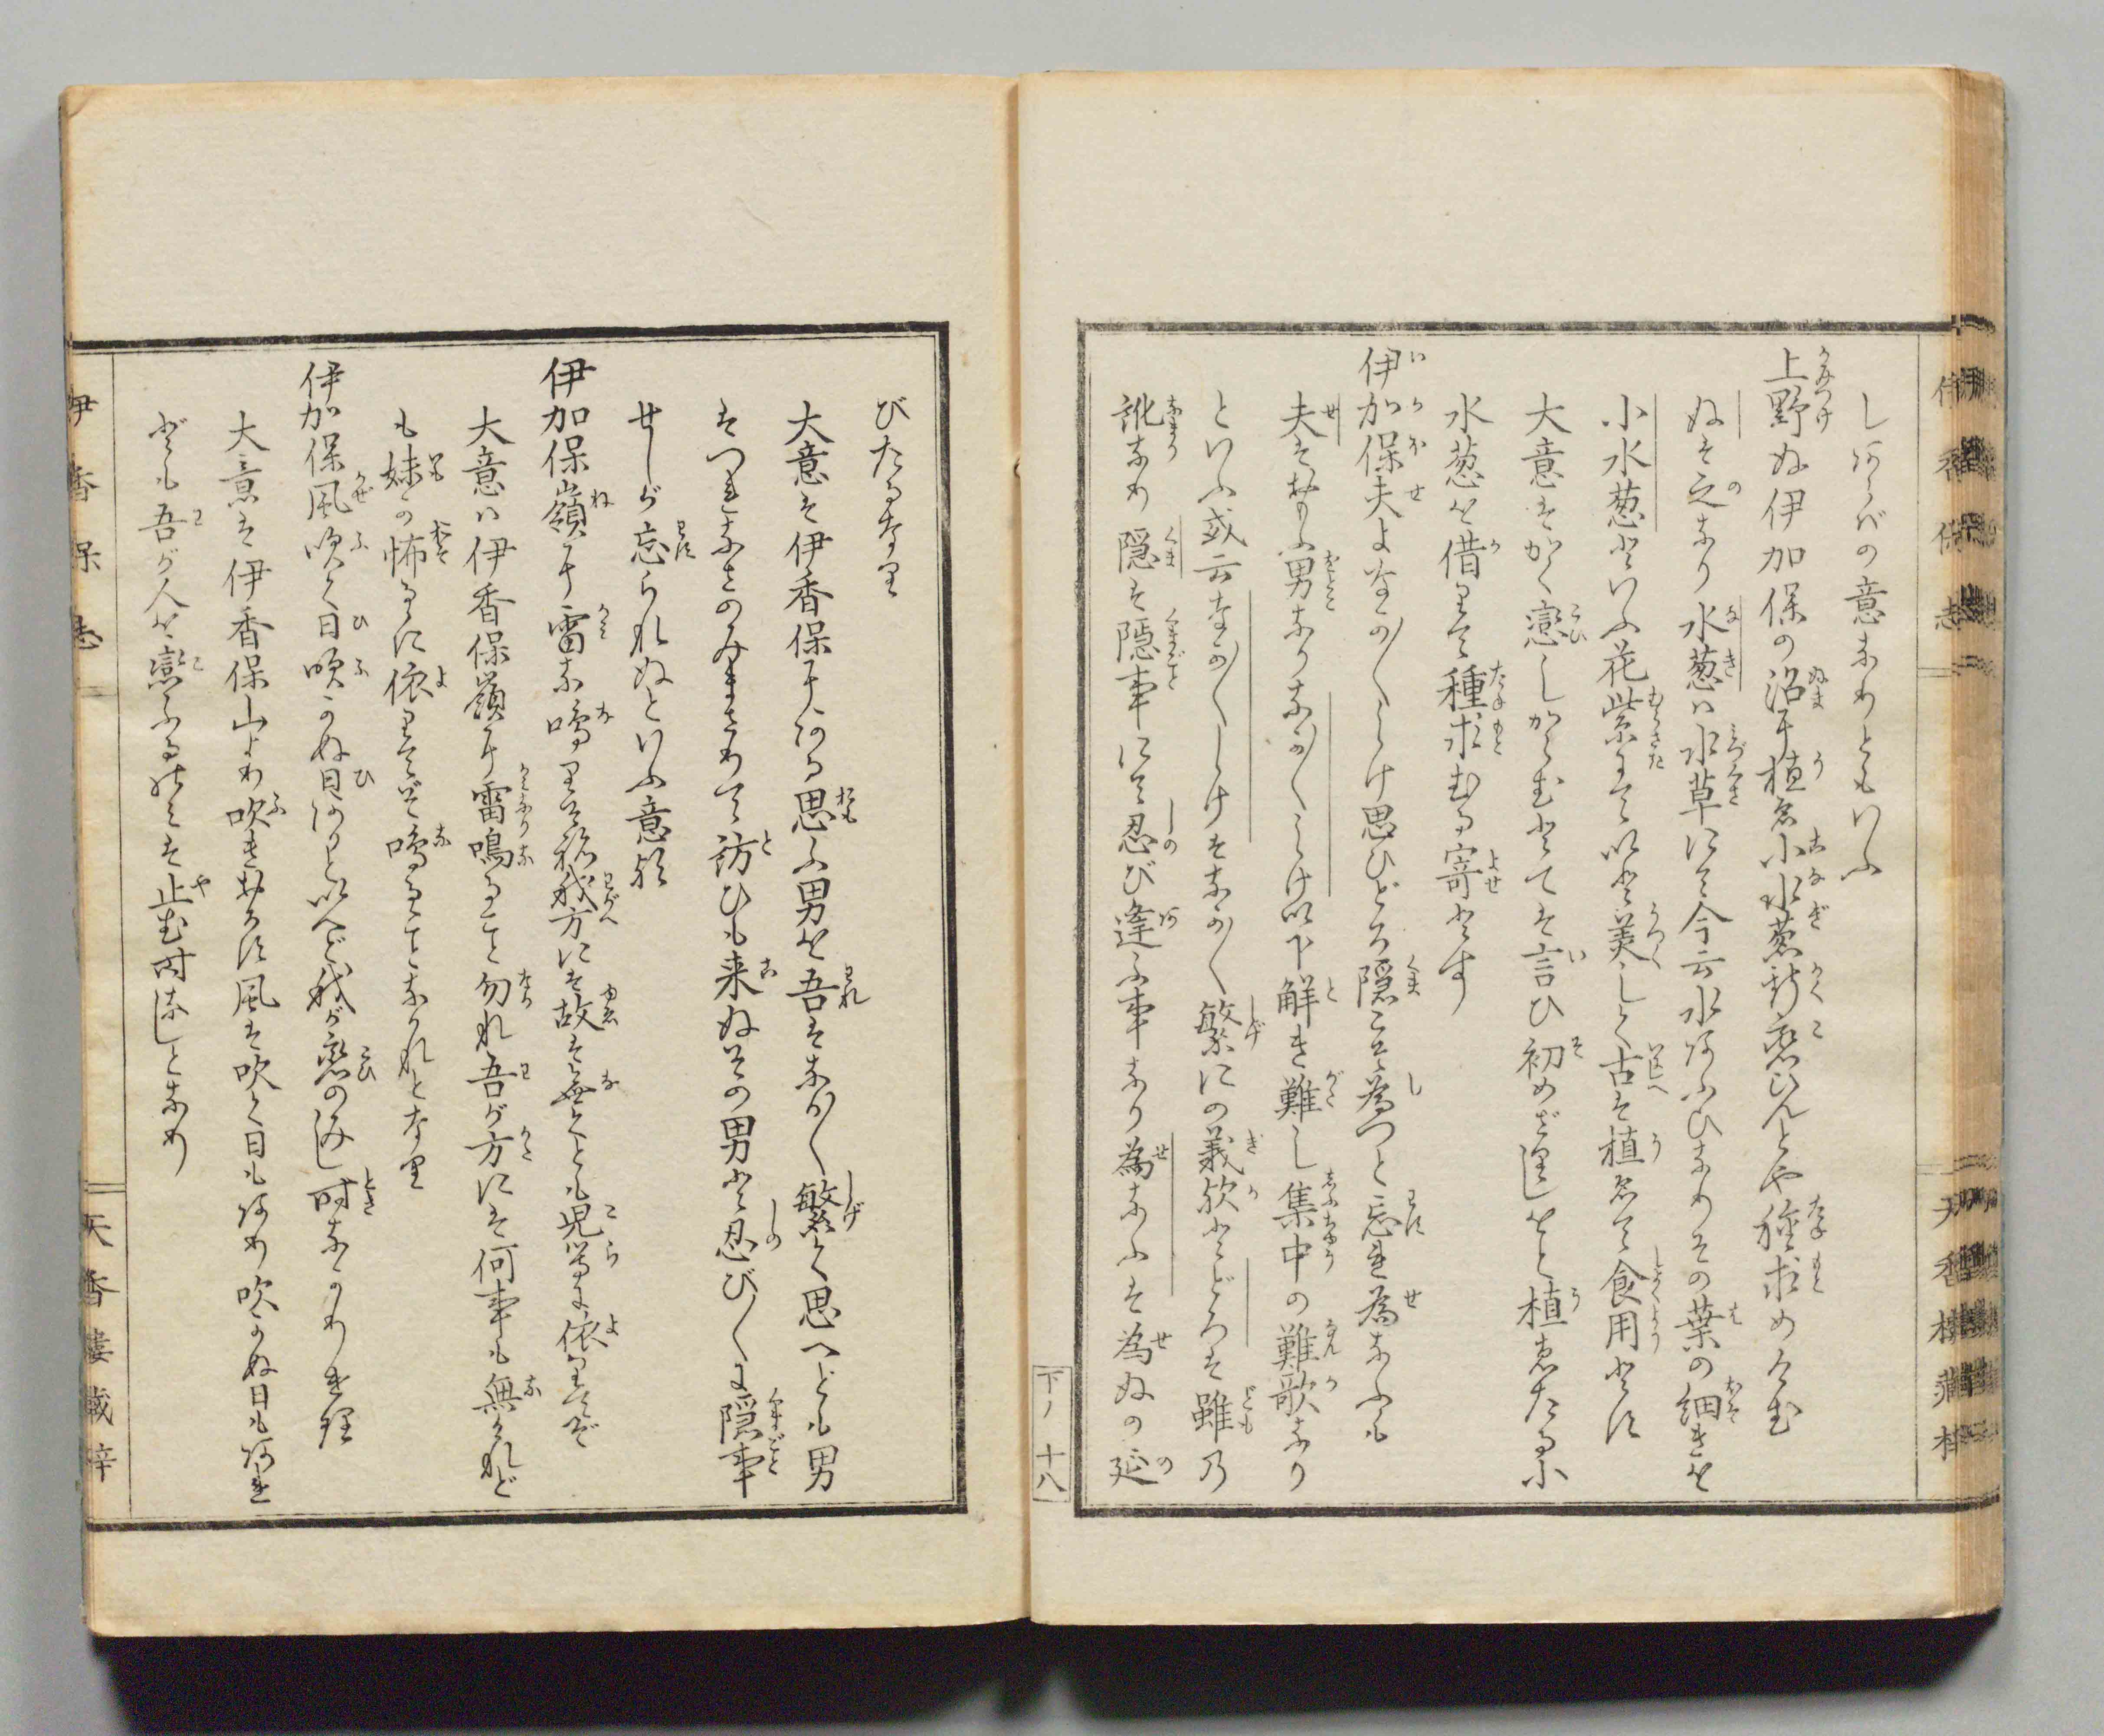 しあらばの意なりともいふ
上野ぬ伊加保の沼に植ゑ小水葱斯く恋ひんとや種求めけむ
ぬは之なり水葱は水草にて今云水あふひなりその葉の細きを
小水葱といふ花紫にていと美しく古は植ゑて食用とす
大意はかく恋しからむとては言ひ初めざりしをと植ゑたる小
水葱を借りて種求むる寄とす
伊加保夫よなか〳〵しけ思ひどろ隠こそ為つと忘れ為なふも
夫は女より云ふ男なりなか〳〵しけ以下解き難し集中の難歌なり
といふ或云なか〳〵しけはなか〳〵繁にの義歟とどろは雖乃
訛なり隠は隠事にて忍び逢ふ事なり為なふは為ぬの延
下ノ十八
びたるなり
大意は伊香保にある思ふ男を吾はなか〳〵繁く思へども男
はつれなさのみまさりて訪ひも来ぬその男と忍び〳〵に隠事
せしが忘られぬといふ意歟
伊加保嶺に雷な鳴りそね我方には故は無くとも児等に依りてぞ
大意は伊香保嶺に雷鳴ること勿れ吾が方には何事も無けれど
も妹の怖るるに依りてぞ鳴ることなかれとなり
伊加保風吹く日吹かぬ日ありと以へど我が恋のみし時なかりけり
大意は伊香保山より吹きおろす風は吹く日もあり吹かぬ日もあれ
ども吾が人を恋ふる心は止む時なしとなり
伊香保志
天香楼蔵梓